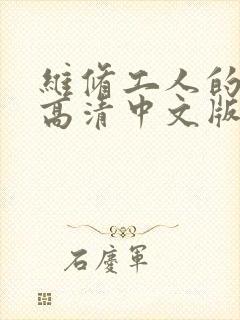 維脩工人的
高清中文版
石慶軍